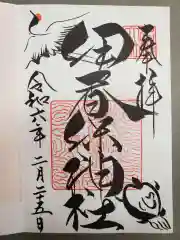 奉拝
伊春保神社
令和六年 二月二十五日